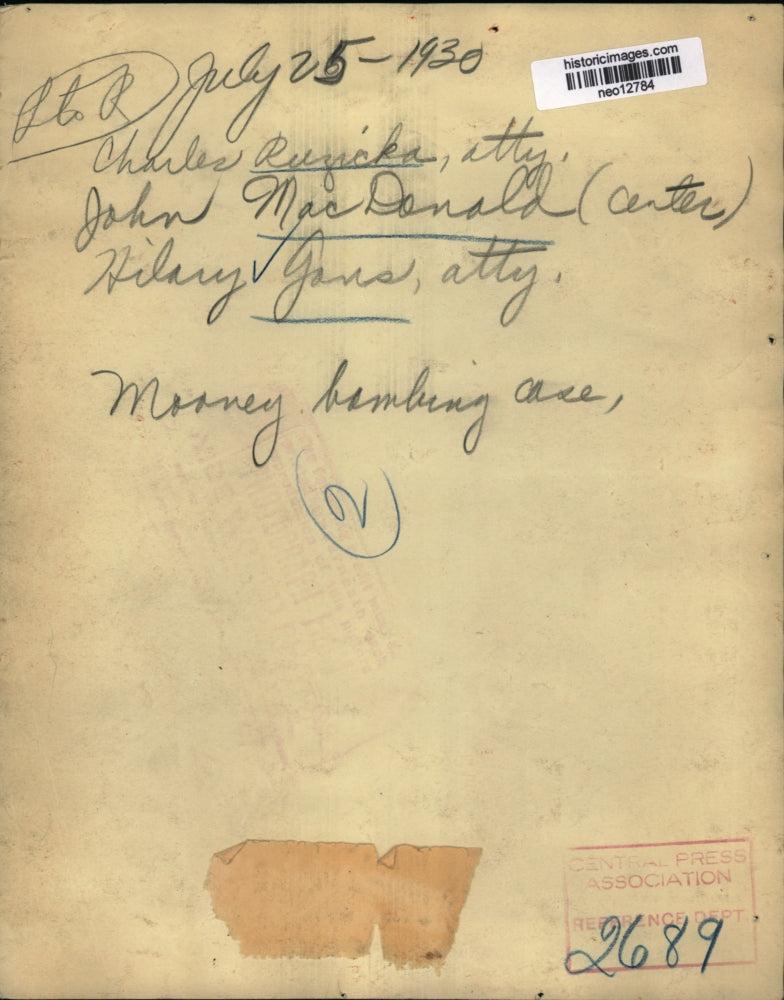 L to R July 25 - 1930
historicimages.com
neo12784
Charles Ruzicka, atty.
John MacDonald (center)
Hilary Gans, atty.
Mooney bombing case,
2
CENTRAL PRESS
ASSOCIATION
REFERENCE DEPT.
2689